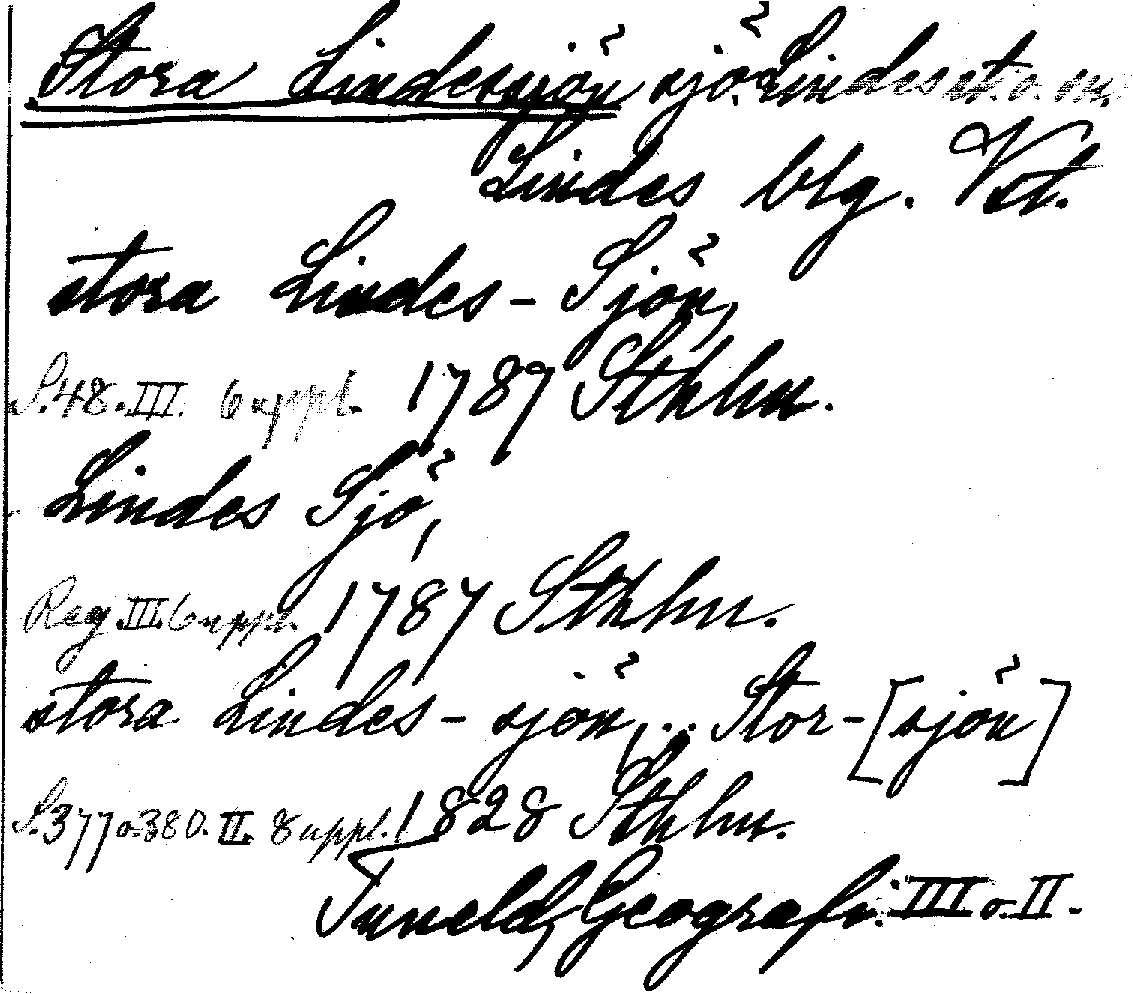 Stora Lindessjön sjö. Lindes st. o. sn.
Lindes blg. Vst.
stora Lindes - Sjön,
S. 48. III. 6 uppl. 1787 Sthlm.
Lindes Sjö,
Reg. III. 6 uppl. 1787 Sthlm.
stora Lindes - sjön, ... Stor-[sjön]
S. 377 o. 380. II. 8 uppl. 1828 Sthlm.
Tuneld, Geografi. III o. II.